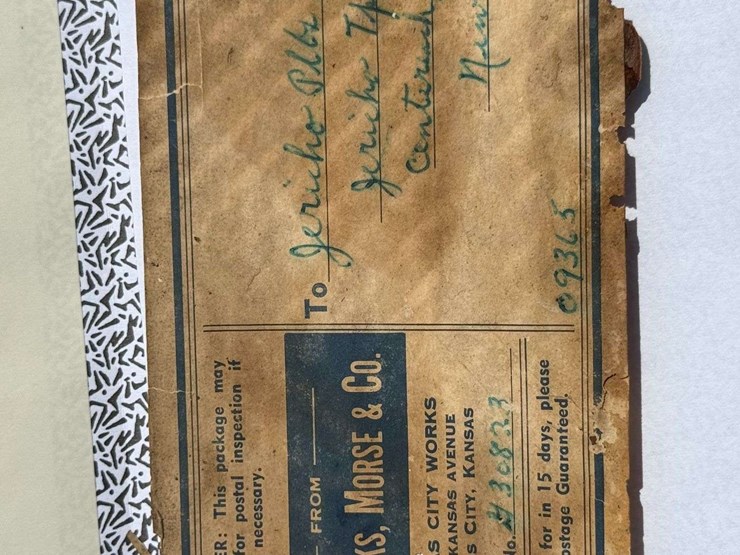 ER: This package may
for postal inspection if
necessary.
FROM
KS, MORSE & CO.
S CITY WORKS
KANSAS AVENUE
S CITY, KANSAS
No. 430823
for in 15 days, please
stage Guaranteed.
To Jericho Plbg
Jericho Tp
Centereach
New
09365